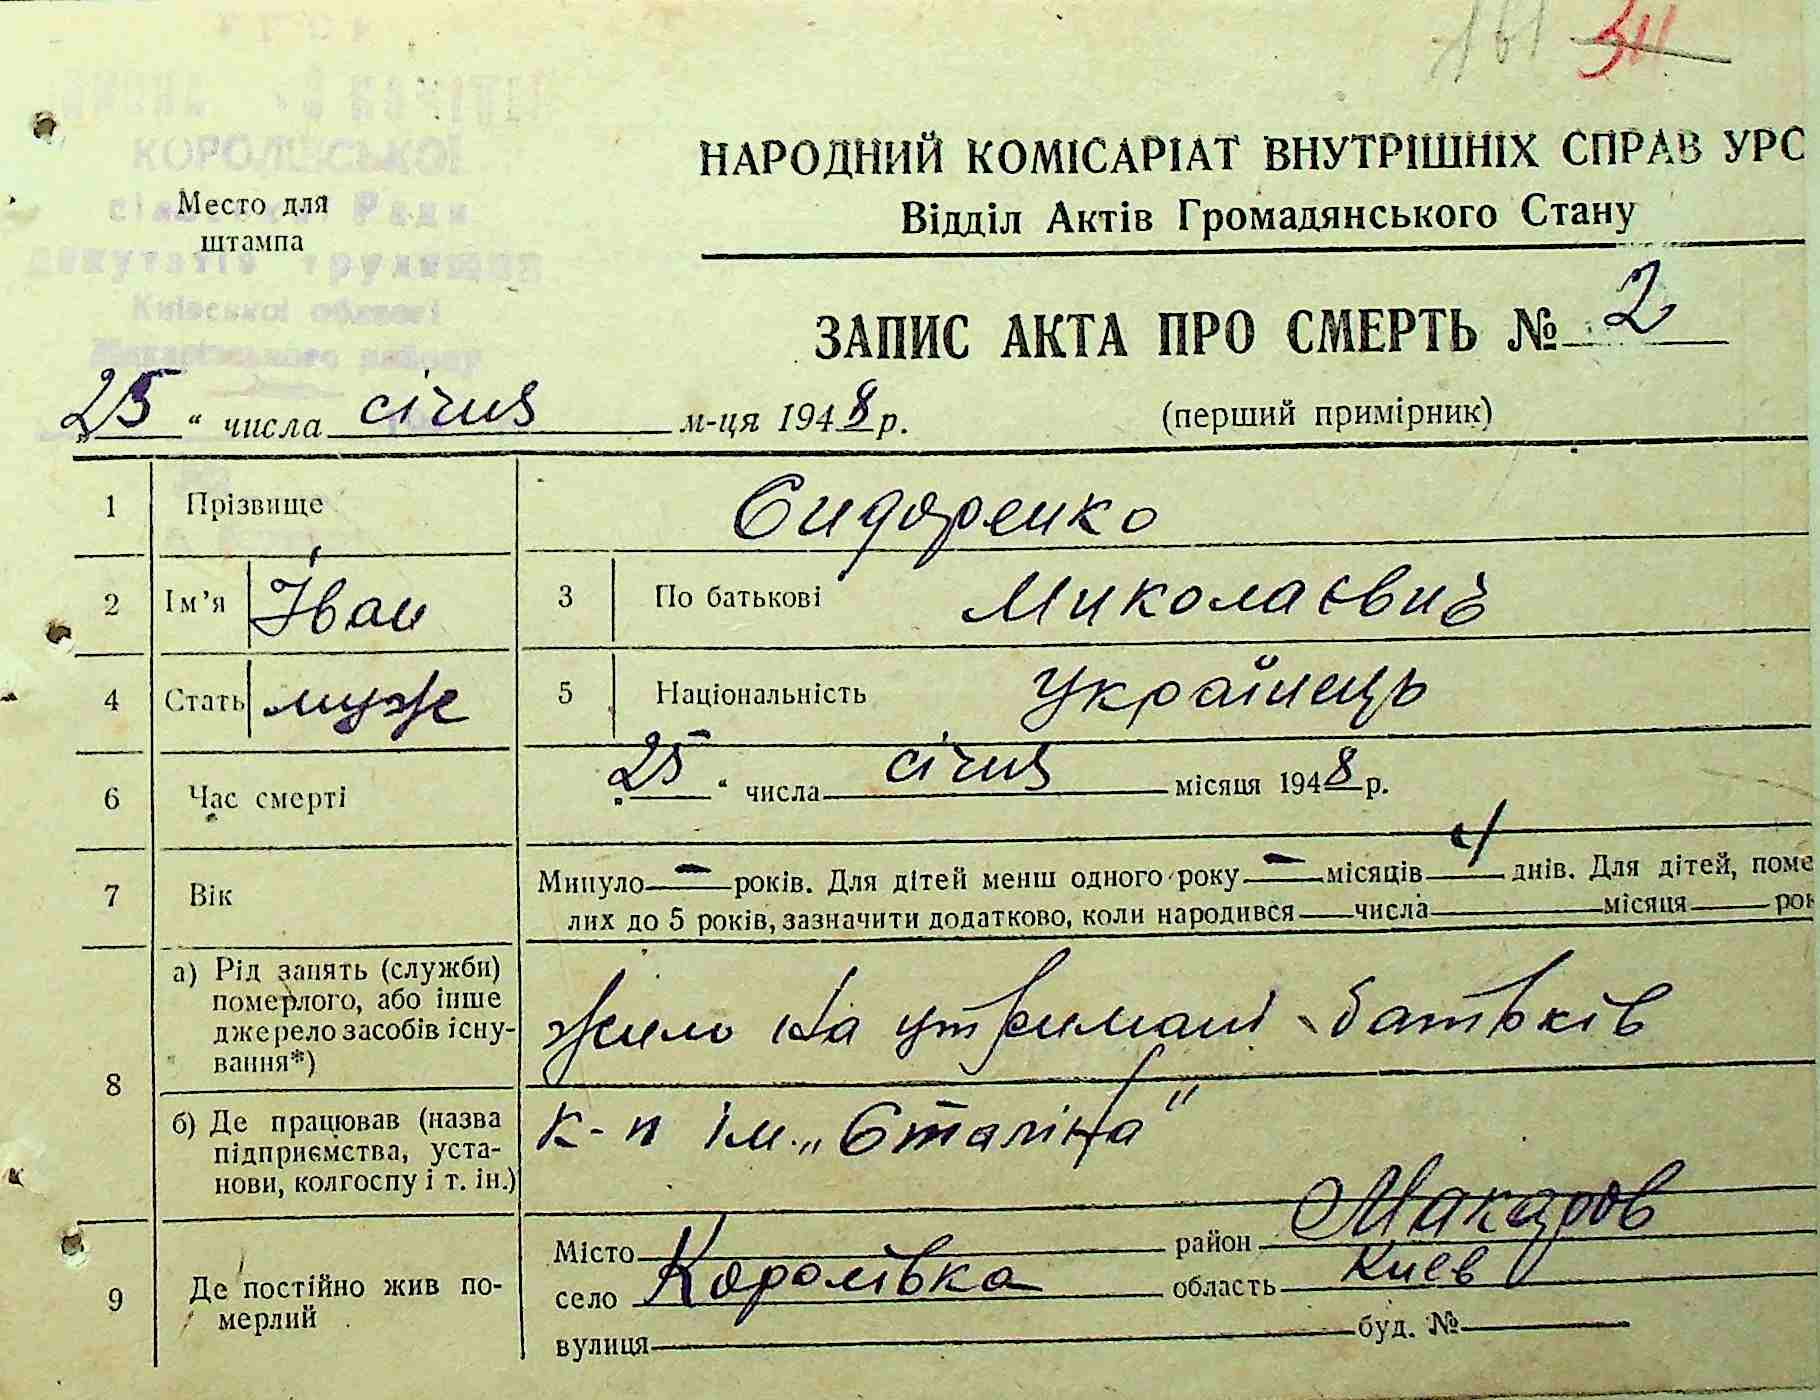 161 311
КОРОЛІВСЬКОЇ
Место для
штампа
сільської Ради
депутатів трудящих
Київської області
Макарівського району
НАРОДНИЙ КОМІСАРІАТ ВНУТРІШНІХ СПРАВ УРС
Відділ Актів Громадянського Стану
ЗАПИС АКТА ПРО СМЕРТЬ № 2
„25“ числа січня м-ця 1948 р.
(перший примірник)
1 Прізвище Сидоренко
2 Ім'я Іван 3 По батькові Миколаєвич
4 Стать муж 5 Національність Українець
6 Час смерті „25“ числа січня місяця 1948 р.
7 Вік Минуло — років. Для дітей менш одного року — місяців 4 днів. Для дітей, поме
лих до 5 років, зазначити додатково, коли народився числа місяця рок
8 а) Рід занять (служби)
померлого, або інше
джерело засобів існу-
вання*)
жило на утримані батьків
б) Де працював (назва
підприємства, уста-
нови, колгоспу і т. ін.)
к-п ім. „Сталіна"
9 Де постійно жив по-
мерлий
Місто район Макаров
село Королівка область Киев
вулиця буд. №